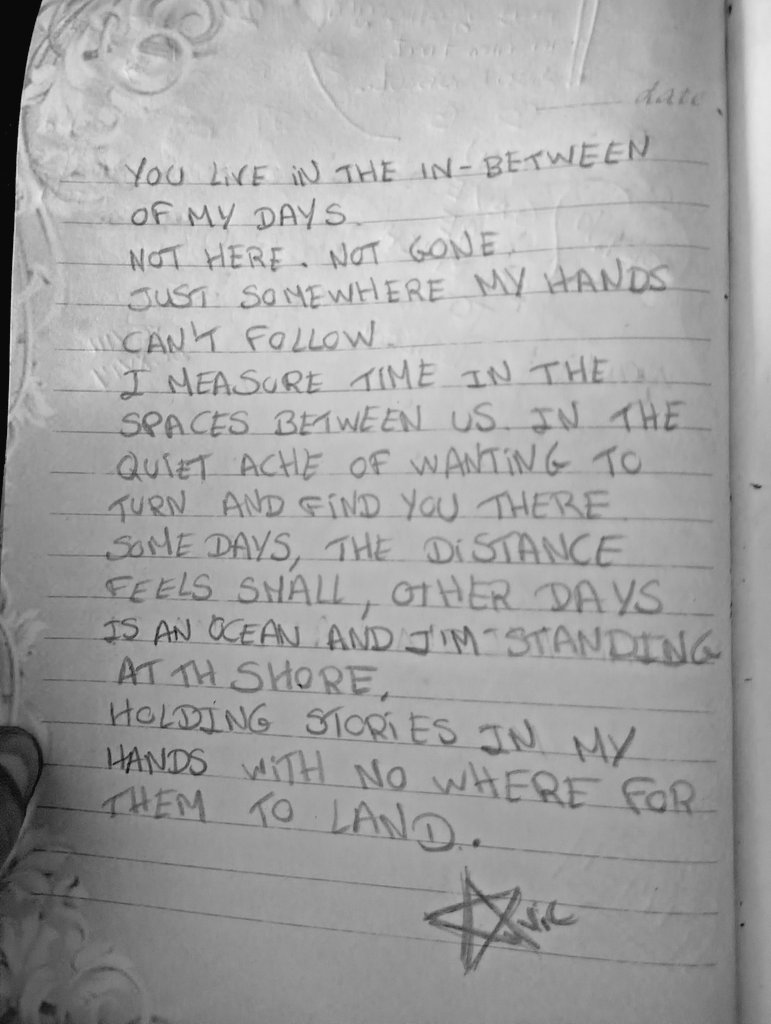 date
YOU LIVE IN THE IN-BETWEEN
OF MY DAYS.
NOT HERE. NOT GONE.
JUST SOMEWHERE MY HANDS
CAN'T FOLLOW.
I MEASURE TIME IN THE
SPACES BETWEEN US. IN THE
QUIET ACHE OF WANTING TO
TURN AND FIND YOU THERE
SOME DAYS, THE DISTANCE
FEELS SMALL, OTHER DAYS
IS AN OCEAN AND I'M STANDING
AT TH SHORE,
HOLDING STORIES IN MY
HANDS WITH NO WHERE FOR
THEM TO LAND.